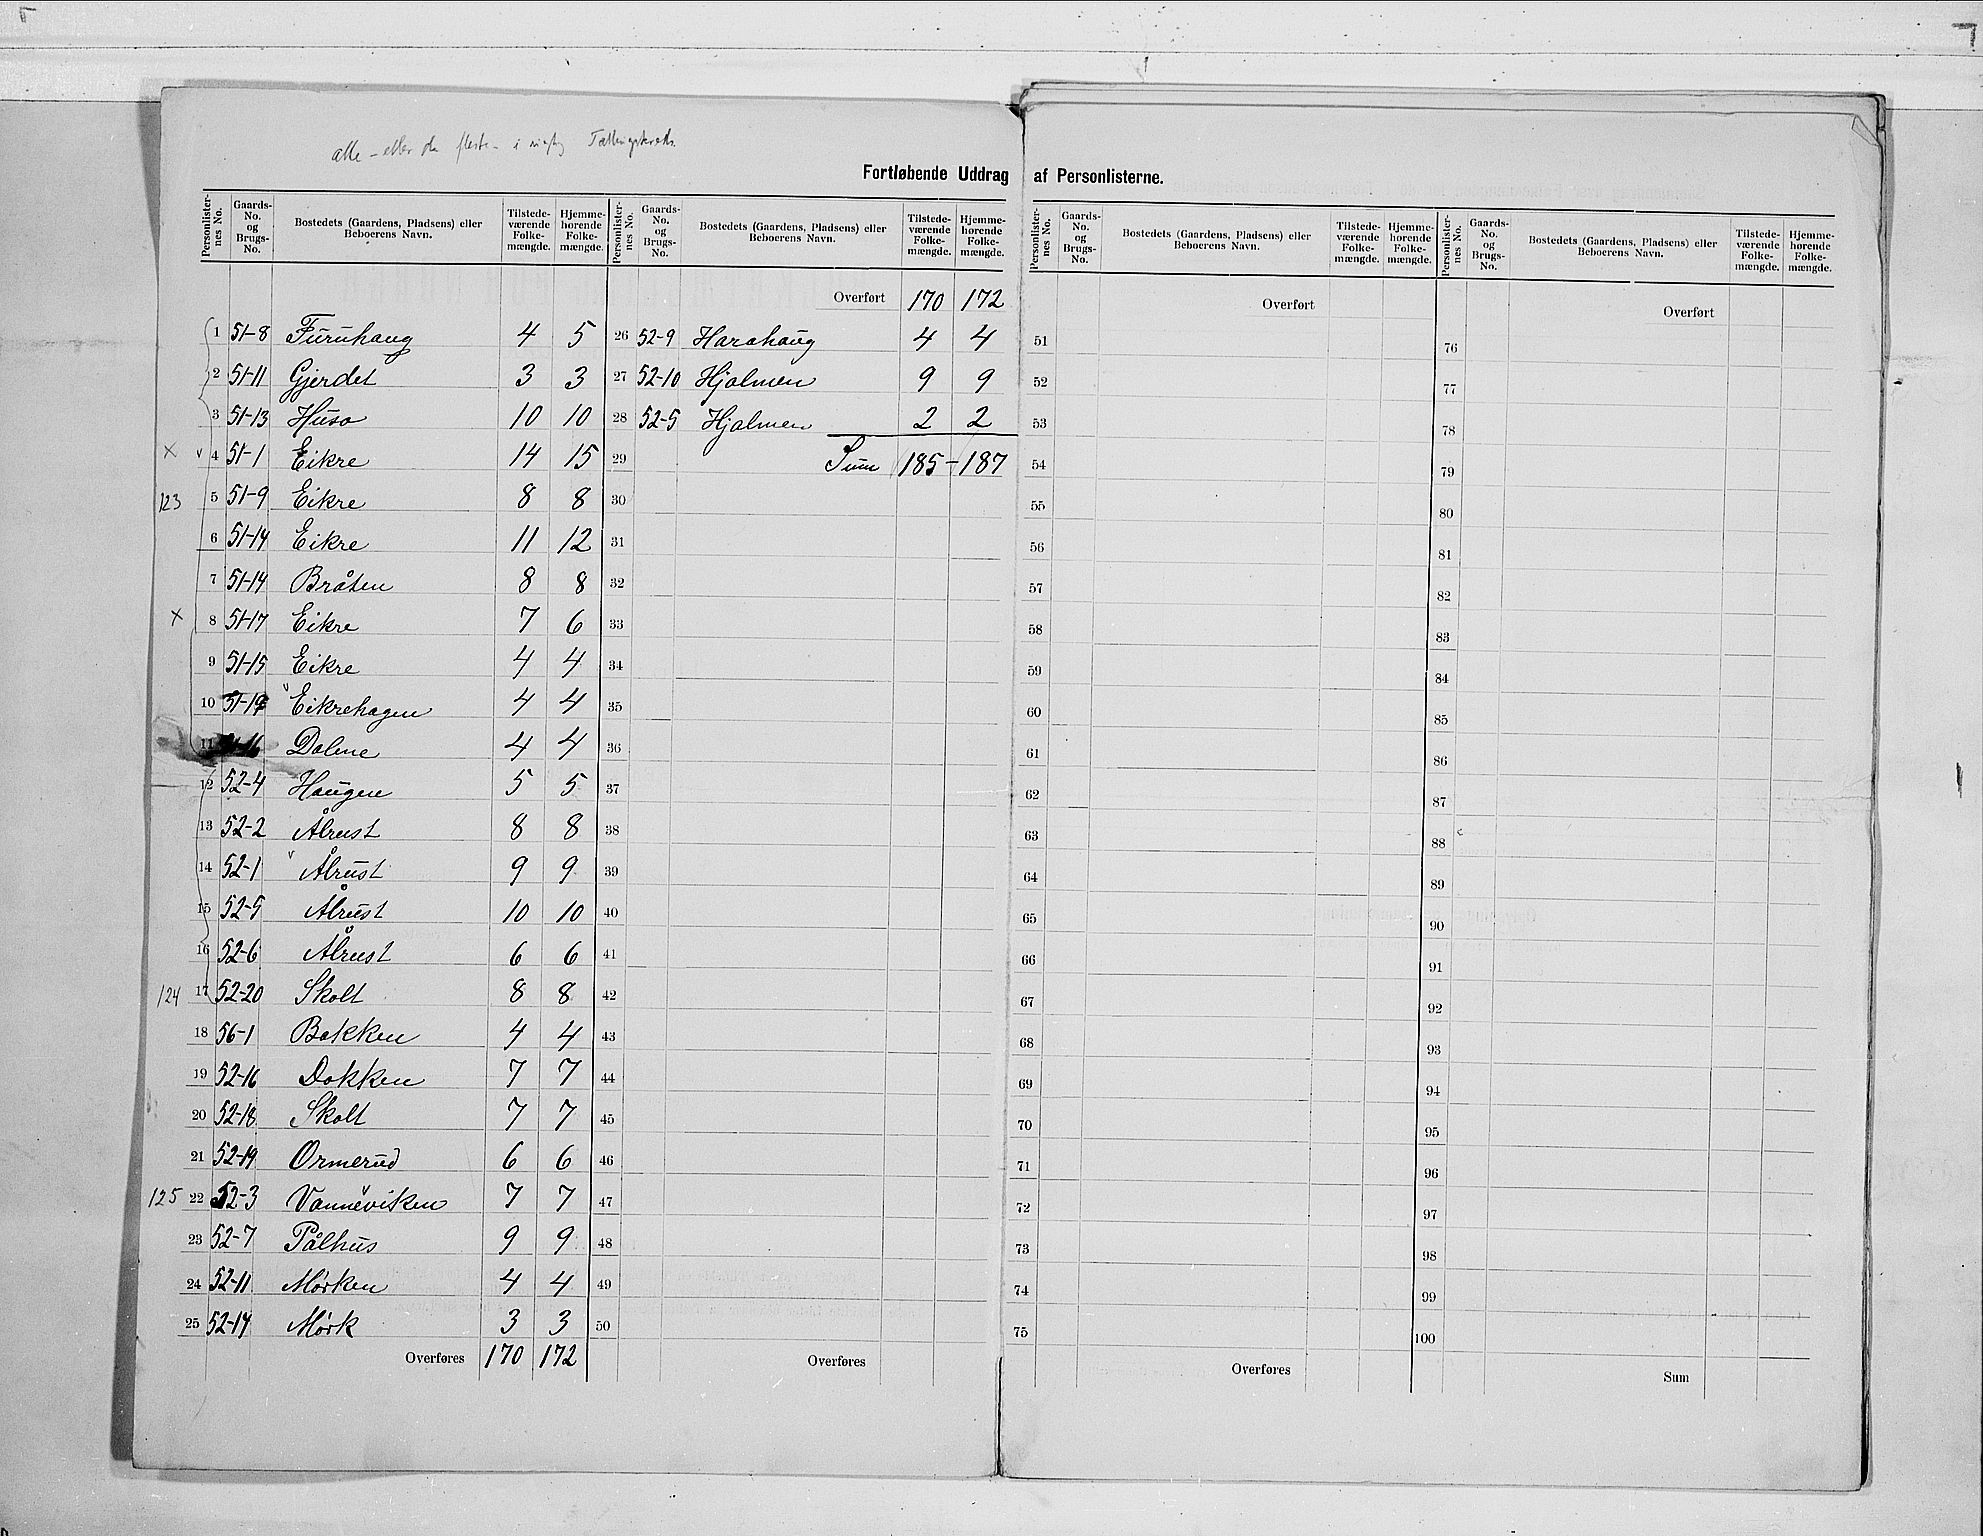 alle - eller de fleste - i rigtig Tællingskreds.
Fortløbende Uddrag af Personlisterne.
Personlisternes No. Gaards-No. og Brugs-No. Bostedets (Gaardens, Pladsens) eller Beboerens Navn. Tilstedeværende Folkemængde. Hjemmehørende Folkemængde. Personlisternes No. Gaards-No. og Brugs-No. Bostedets (Gaardens, Pladsens) eller Beboerens Navn. Tilstedeværende Folkemængde. Hjemmehørende Folkemængde. Personlisternes No. Gaards-No. og Brugs-No. Bostedets (Gaardens, Pladsens) eller Beboerens Navn. Tilstedeværende Folkemængde. Hjemmehørende Folkemængde. Personlisternes No. Gaards-No. og Brugs-No. Bostedets (Gaardens, Pladsens) eller Beboerens Navn. Tilstedeværende Folkemængde. Hjemmehørende Folkemængde.
Overført 170 172 Overført Overført
1 51-8 Furuhaug 4 5 26 52-9 Harahaug 4 4 51 76
2 51-11 Gjerdet 3 3 27 52-10 Hjalmen 9 9 52 77
3 51-13 Huso 10 10 28 52-5 Hjalmen 2 2 53 78
x v 4 51-1 Eikre 14 15 29 Sum 185-187 54 79
123 5 51-9 Eikre 8 8 30 55 80
6 51-14 Eikre 11 12 31 56 81
7 51-14 Bråten 8 8 32 57 82
x 8 51-17 Eikre 7 6 33 58 83
9 51-15 Eikre 4 4 34 59 84
10 v Eikrehagen 4 4 35 60 85
11 Dalene 4 4 36 61 86
12 52-4 Haugen 5 5 37 62 87
13 52-2 Ålrust 8 8 38 63 88
14 52-1 v Ålrust 9 9 39 64 89
15 52-5 Ålrust 10 10 40 65 90
16 52-6 Ålrust 6 6 41 66 91
124 17 52-20 Skolt 8 8 42 67 92
18 56-1 Bakken 4 4 43 68 93
19 52-16 Dokken 7 7 44 69 94
20 52-18 Skolt 7 7 45 70 95
21 52-19 Ormerud 6 6 46 71 96
125 22 52-3 Vanneviken 7 7 47 72 97
23 52-7 Pålhus 9 9 48 73 98
24 52-11 Mørken 4 4 49 74 99
25 52-14 Mørk 3 3 50 75 100
Overføres 170 172 Overføres Overføres Sum